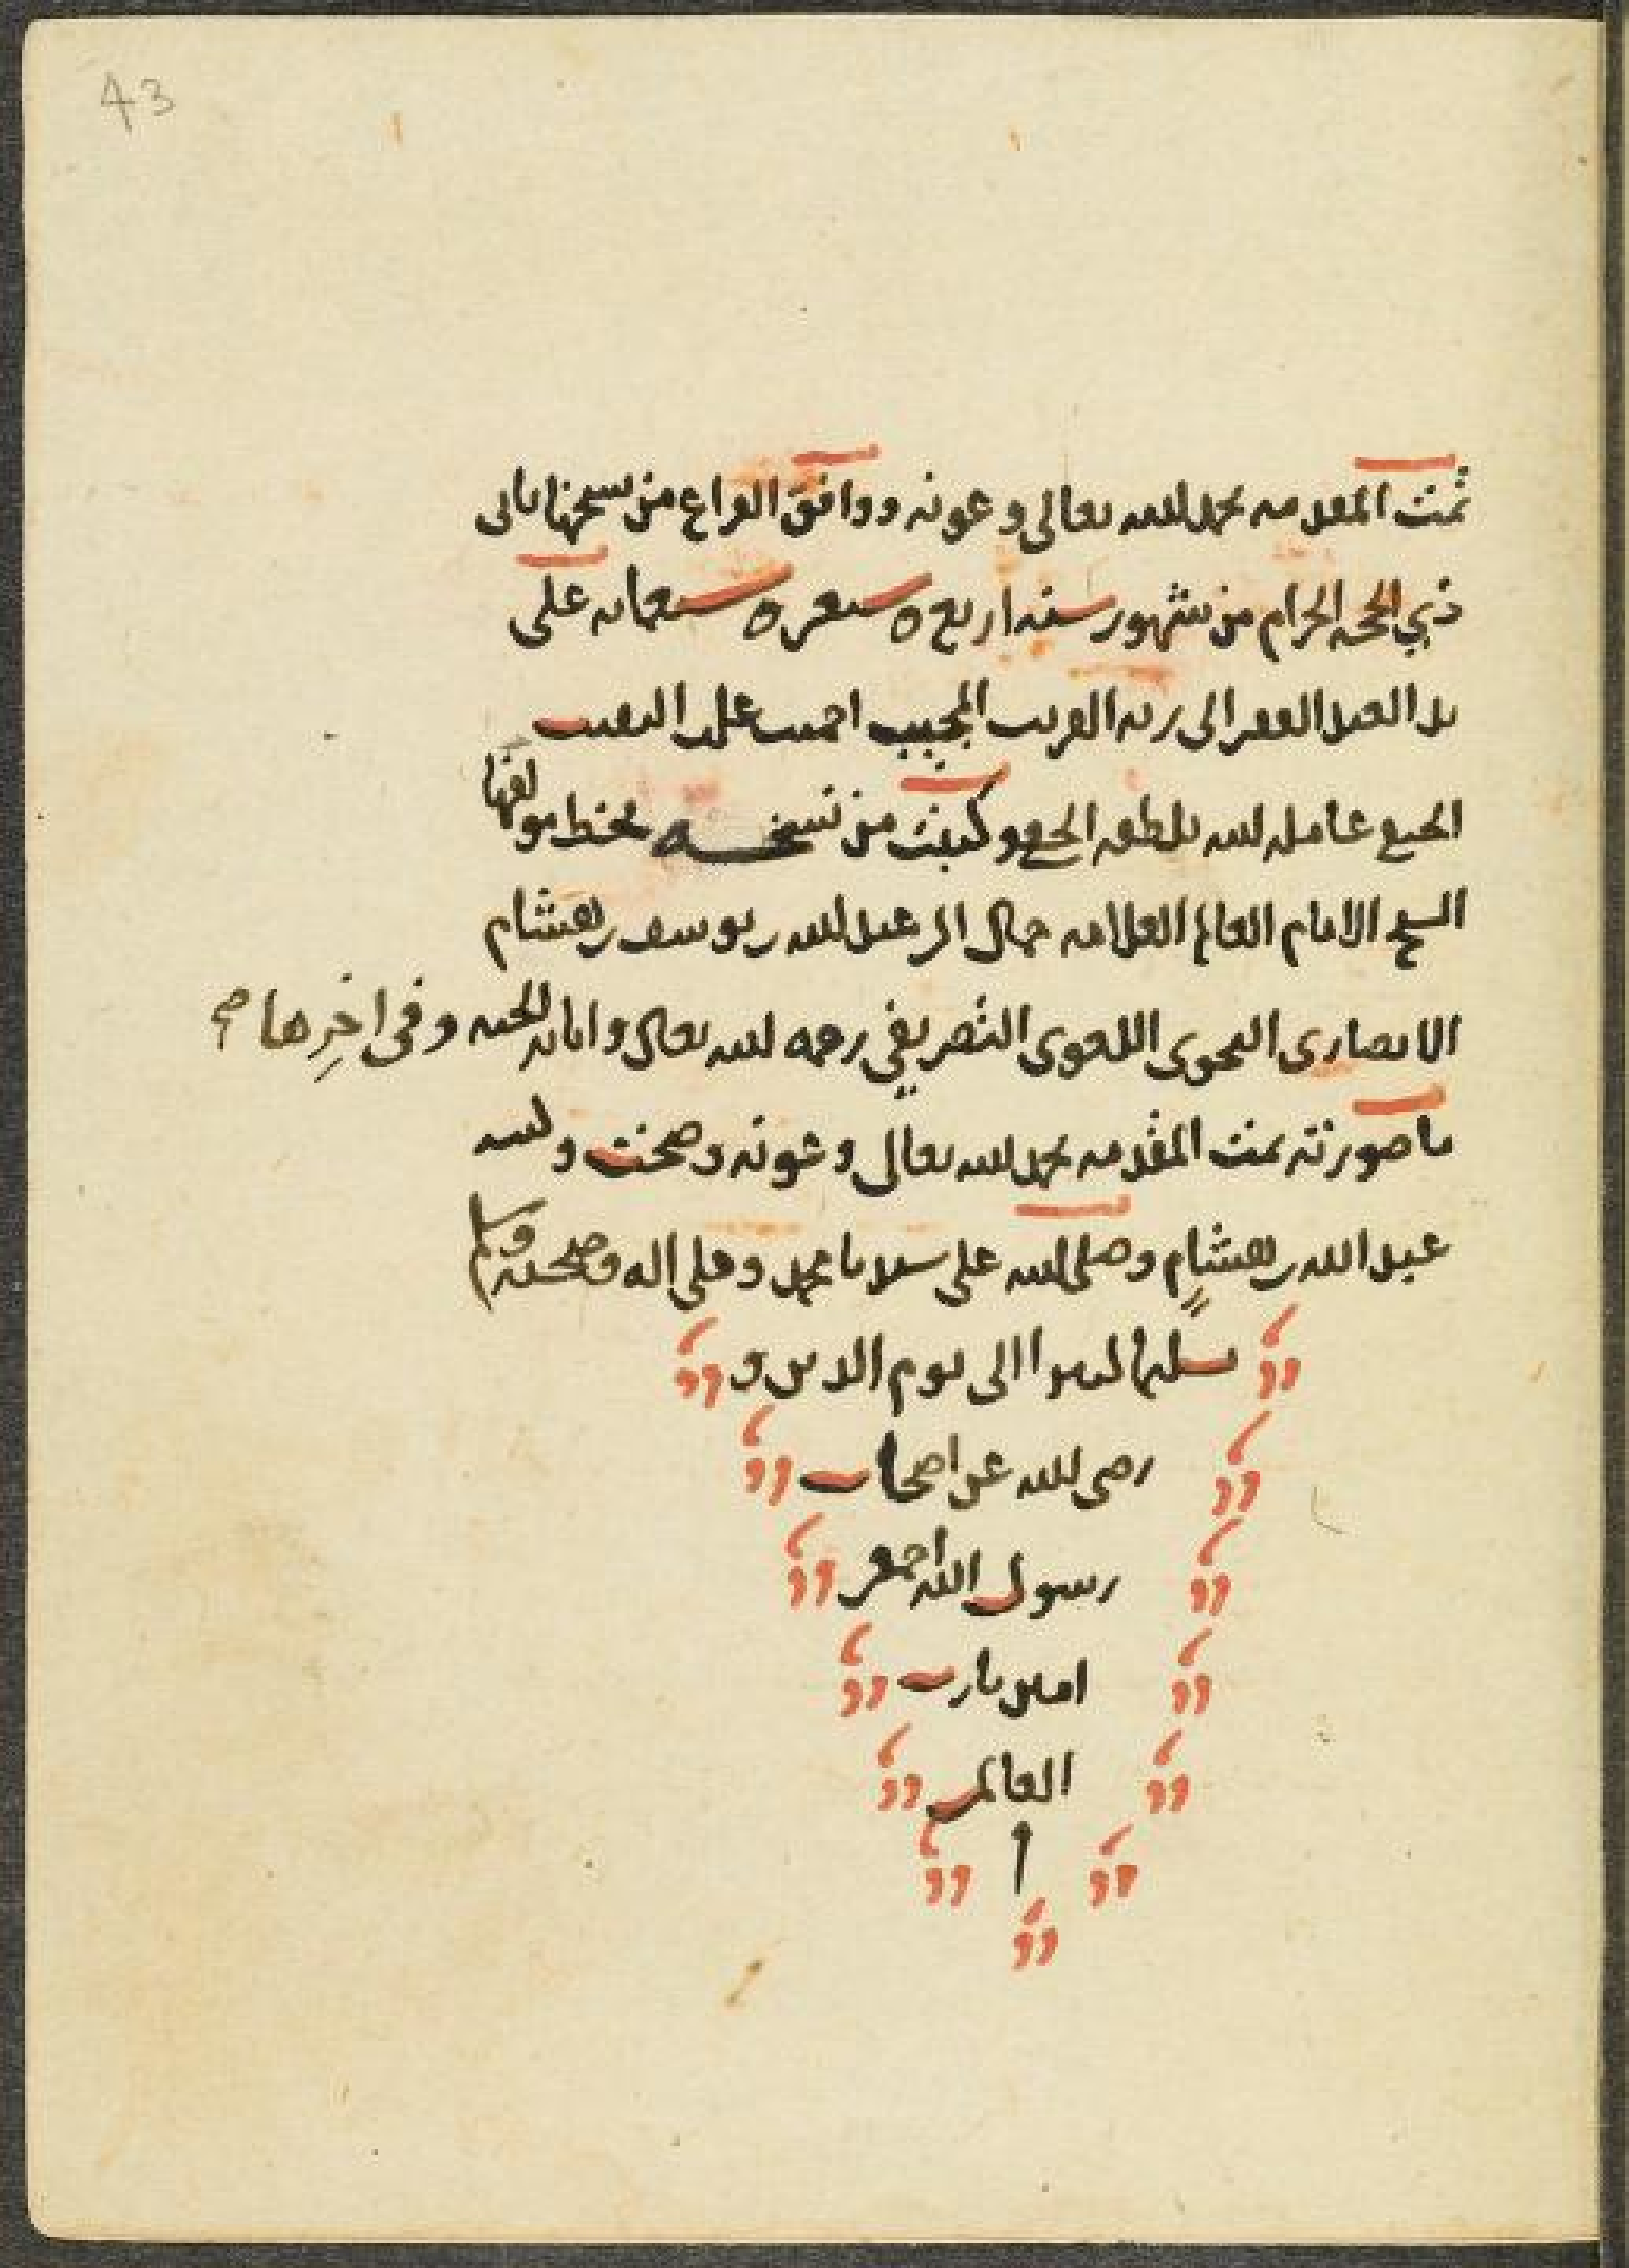 43
تمت المقدمة بحمد الله تعالى وعونه ووافق الفراغ من نسخها ثاني
ذي الحجة الحرام من شهور سنة اربع وتسعين وسبعمائة على
يد العبد الفقير الى ربه القريب المجيب احمد بن علي النقيب
الحنفي عامله الله بلطفه الخفي وكتبت من نسخة بخط مولفها
الشيخ الامام العالم العلامة جمال الدين عبد الله بن يوسف بن هشام
الانصاري النحوي اللغوي التصريفي رحمه الله تعالى واثابه الجنة وفي اخرها صح
ما صورته تمت المقدمة بحمد الله تعالى وعونه وصحت وكتبه
عبد الله بن هشام وصلى الله على سيدنا محمد وعلى اله وصحبه وسلم
تسليما كثيرا الى يوم الدين و
رضي الله عن اصحاب
رسول الله اجمعين
امين يا رب
العالمين